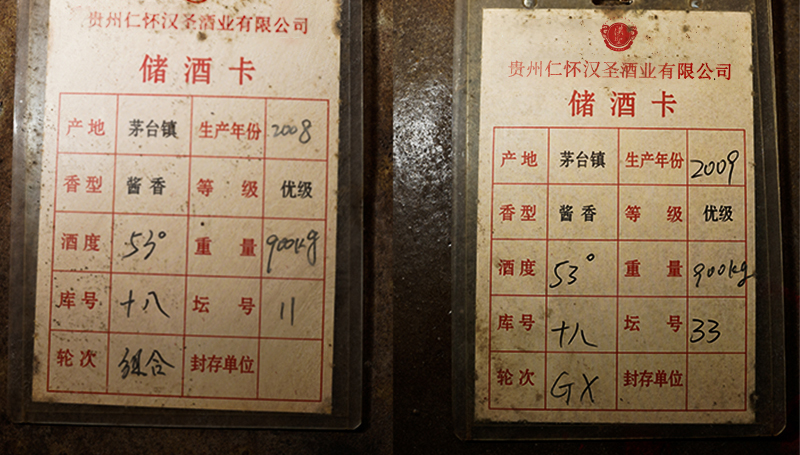 贵州仁怀汉圣酒业有限公司
储酒卡
产地 茅台镇 生产年份 2008
香型 酱香 等级 优级
酒度 53° 重量 900kg
库号 十八 坛号 11
轮次 组合 封存单位
贵州仁怀汉圣酒业有限公司
储酒卡
产地 茅台镇 生产年份 2009
香型 酱香 等级 优级
酒度 53° 重量 900kg
库号 十八 坛号 33
轮次 GX 封存单位